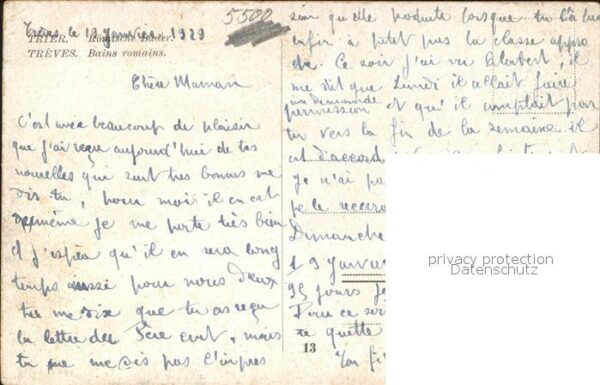 5500
Trèves le 13 Janvier 1929
TRIER. Römische Bäder.
TRÈVES. Bains romains.
Chère Maman
C'est avec beaucoup de plaisir
que j'ai reçu aujourd'hui de tes
nouvelles qui sont très bonnes me
dis tu, pour moi il en est
de même je me porte très bien
et j'espère qu'il en sera long
temps aussi pour nous deux
tu me dis que tu as reçu
la lettre du Père mais
tu me me dis pas l'impres
sion qu'elle produite lorsque tu l'as lue
enfin à bientôt pas la classe appro
che. Ce soir j'ai vu il
me dit que Lundi il allait faire
une demande
permission et qu'il comptait par
tir vers la fin de la semaine il
est d'accord
Je n'ai pa
je le
Dimanche
19 Janvier
95 jours je
Pour ce soi
te quitte
Ton fi
13
privacy protection
Datenschutz